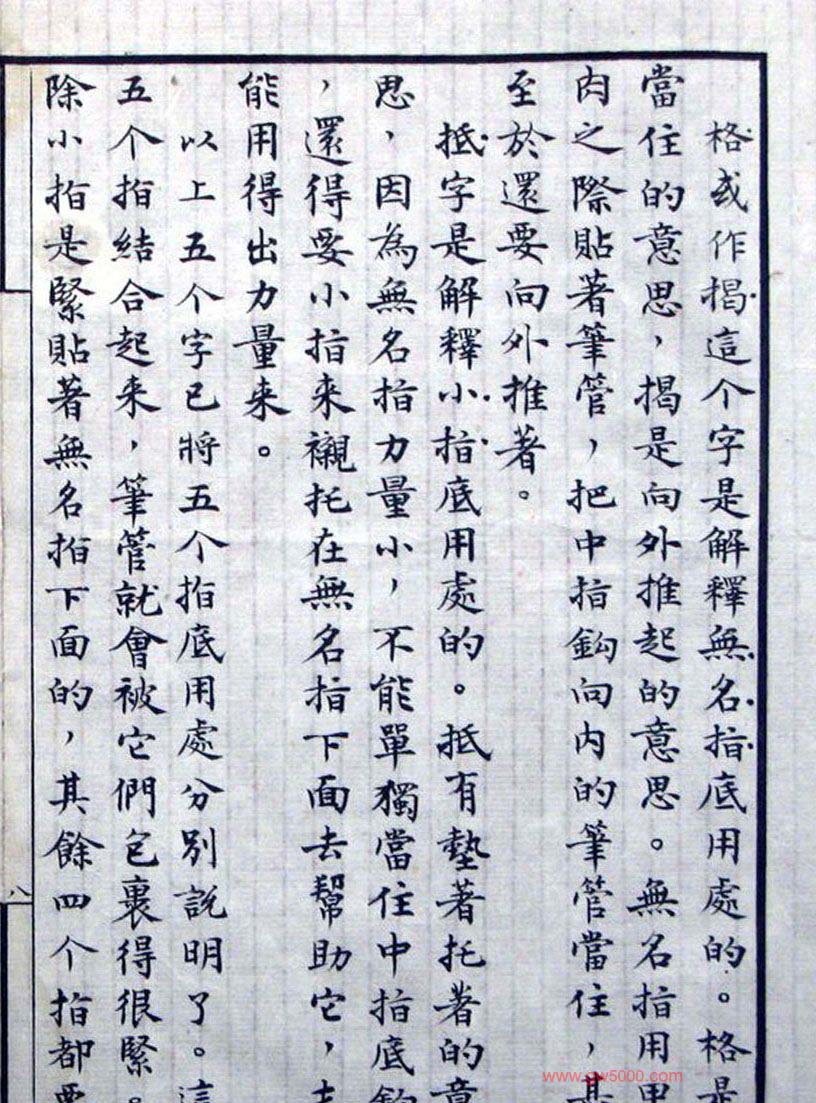 格或作揭這个字是解釋無名指底用處的。格是
當住的意思，揭是向外推起的意思。無名指用甲
肉之際貼著筆管，把中指鈎向内的筆管當住，甚
至於還要向外推著。
抵字是解釋小指底用處的。抵有墊著托著的意
思，因為無名指力量小，不能單獨當住中指底鈎
，還得要小指来襯托在無名指下面去幫助它，才
能用得出力量来。
以上五个字已將五个指底用處分別說明了。這
五个指結合起来，筆管就會被它們包裹得很緊。
除小指是緊貼著無名指下面的，其餘四个指都要
八
www.gw5000.com